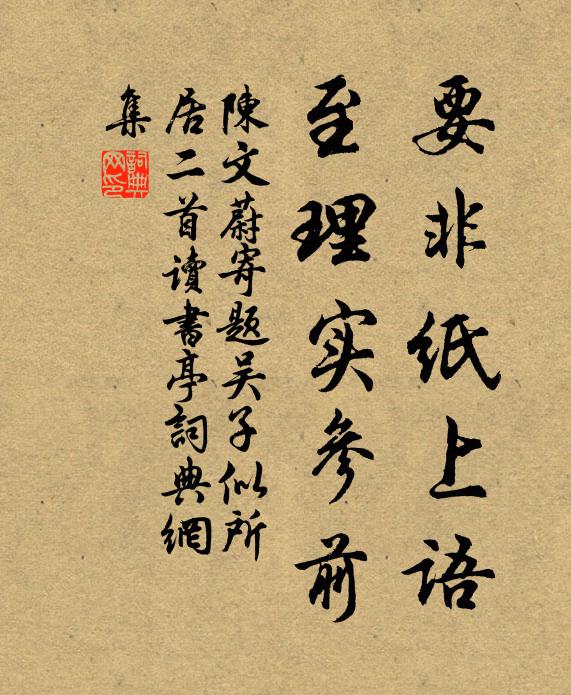 要非纸上語
至理实參前
陳文蔚寄题吴子似所
居二首讀書亭詞典網
集
詞典
网印